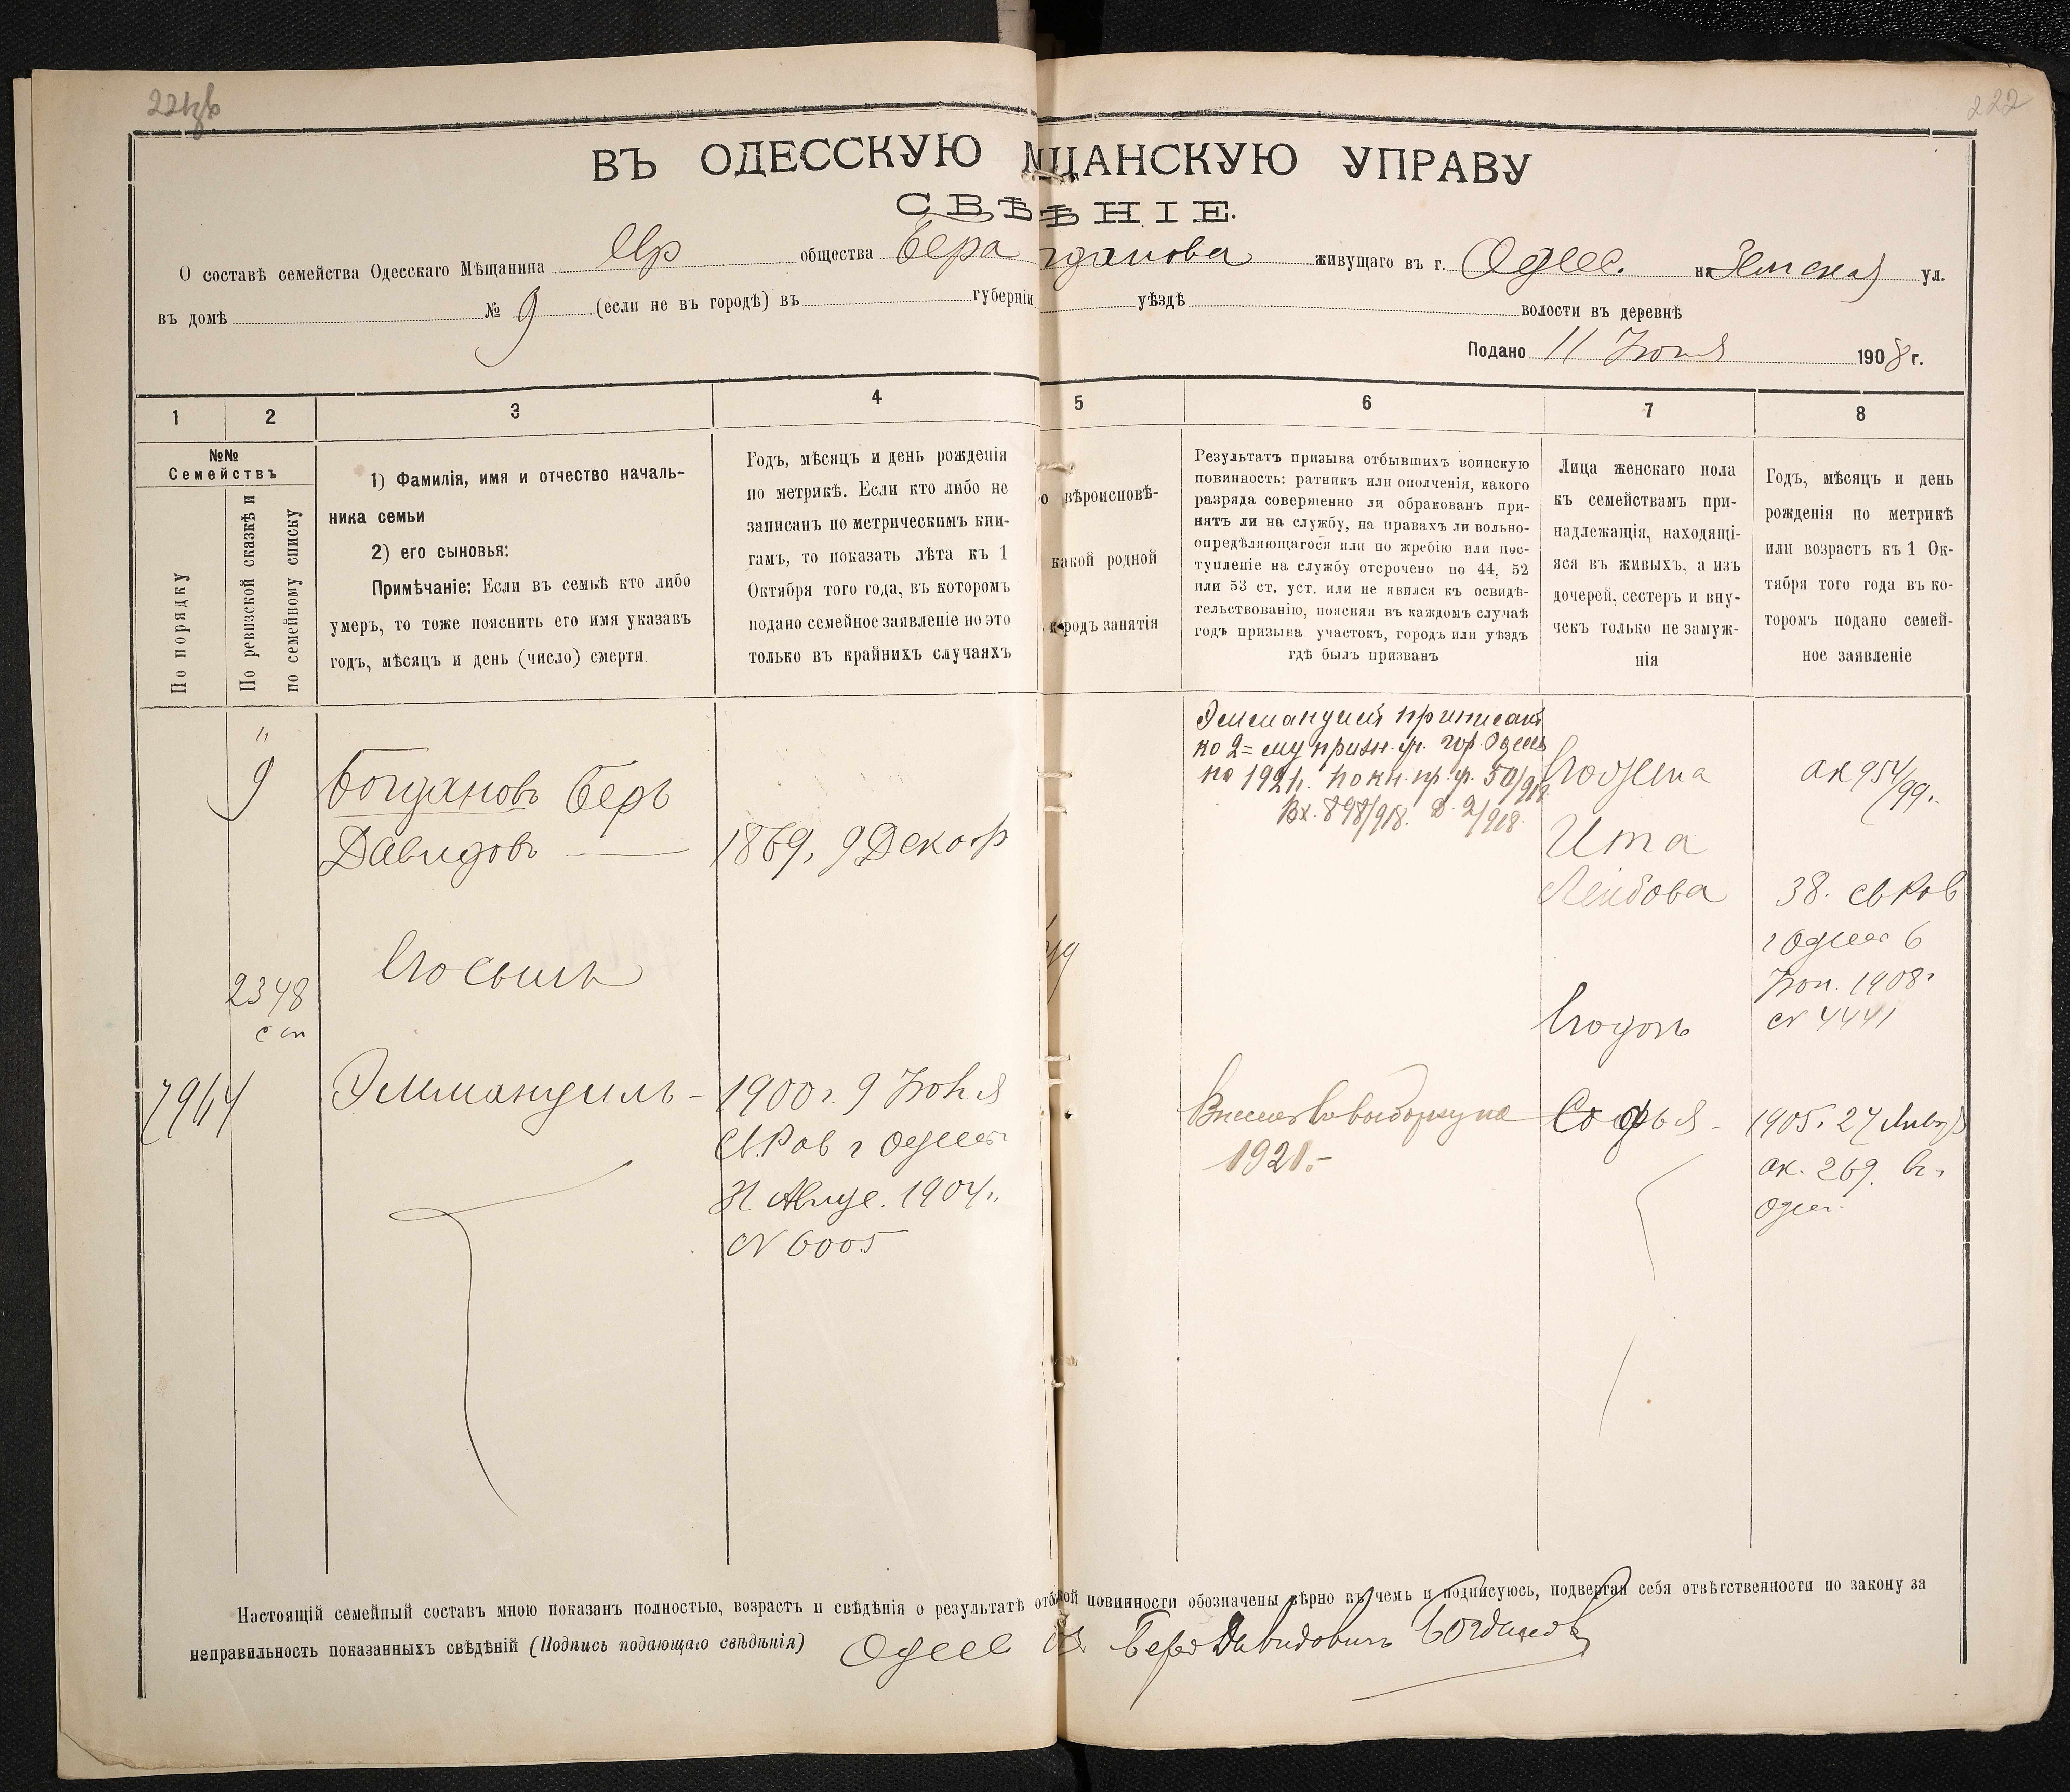 222
ВЪ ОДЕССКУЮ ЩАНСКУЮ УПРАВУ
СВѢ ѢНІЕ.
О составѣ семейства Одесскаго Мѣщанина Евр общества Бера гданова живущаго въ г. Одес. на Земская ул.
въ домѣ № 9 (если не въ городѣ) въ губерніи уѣздѣ волости въ деревнѣ
Подано 11 Іюня 1908 г.
1 2 3 4 5 6 7 8
№№
Семействъ
По порядку
По ревизской сказкѣ и
по семейному списку
1) Фамилія, имя и отчество началь-
ника семьи
2) его сыновья:
Примѣчаніе: Если въ семьѣ кто либо
умеръ, то тоже пояснить его имя указавъ
годъ, мѣсяцъ и день (число) смерти
Годъ, мѣсяцъ и день рожденія
по метрикѣ. Если кто либо не
записанъ по метрическимъ кни-
гамъ, то показать лѣта къ 1
Октября того года, въ которомъ
подано семейное заявленіе но это
только въ крайнихъ случаяхъ
о вѣроисповѣ-
какой родной
родъ занятія
Результатъ призыва отбывшихъ воинскую
повинность: ратникъ или ополченія, какого
разряда совершенно ли обракованъ при-
нятъ ли на службу, на правахъ ли вольно-
опредѣляющагося или по жребію или пос-
тупленіе на службу отсрочено по 44, 52
или 53 ст. уст. или не явился къ освидѣ-
тельствованію, поясняя въ каждомъ случаѣ
годъ призыва участокъ, городъ или уѣздъ
гдѣ былъ призванъ
Лица женскаго пола
къ семействамъ при-
надлежащія, находящі-
яся въ живыхъ, а изъ
дочерей, сестеръ и вну-
чекъ только не замуж-
нія
Годъ, мѣсяцъ и день
рожденія по метрикѣ
или возрастъ къ 1 Ок-
тября того года въ ко-
торомъ подано семей-
ное заявленіе
9
Богдановъ Беръ
Давидовъ
1869, 9 Декабр
Эммануилъ приписанъ
ко 2=му призн. уч. гор. Одессы
на 1921г. по кн. пр. уч. 50/918
Вх. 898/918. Д. 2/918.
Его жена
Ита
Лейбова
ак 954/99г.
38. св Рав
г Одессы 6
Іюн. 1908г
№ 4441
2348
с сп
Его сынъ
Его дочь
7964
Эммануилъ -
1900 г. 9 Іюня
св. Рав г Одессы
31 Авгус. 1904г.
№ 6005
Внесенъ въ выборку на
1921.-
Софья -
1905. 27 Янв
ак. 269. въ г.
Одес.
Настоящій семейный составъ мною показанъ полностью, возрастъ и свѣдѣнія о результатѣ отб кой повинности обозначены вѣрно въ чемъ и подписуюсь, подвергая себя отвѣтственности по закону за
неправильность показанныхъ свѣдѣній (Подпись подающаго свѣдѣнія) Одесс Беръ Давидовичъ Богдановъ